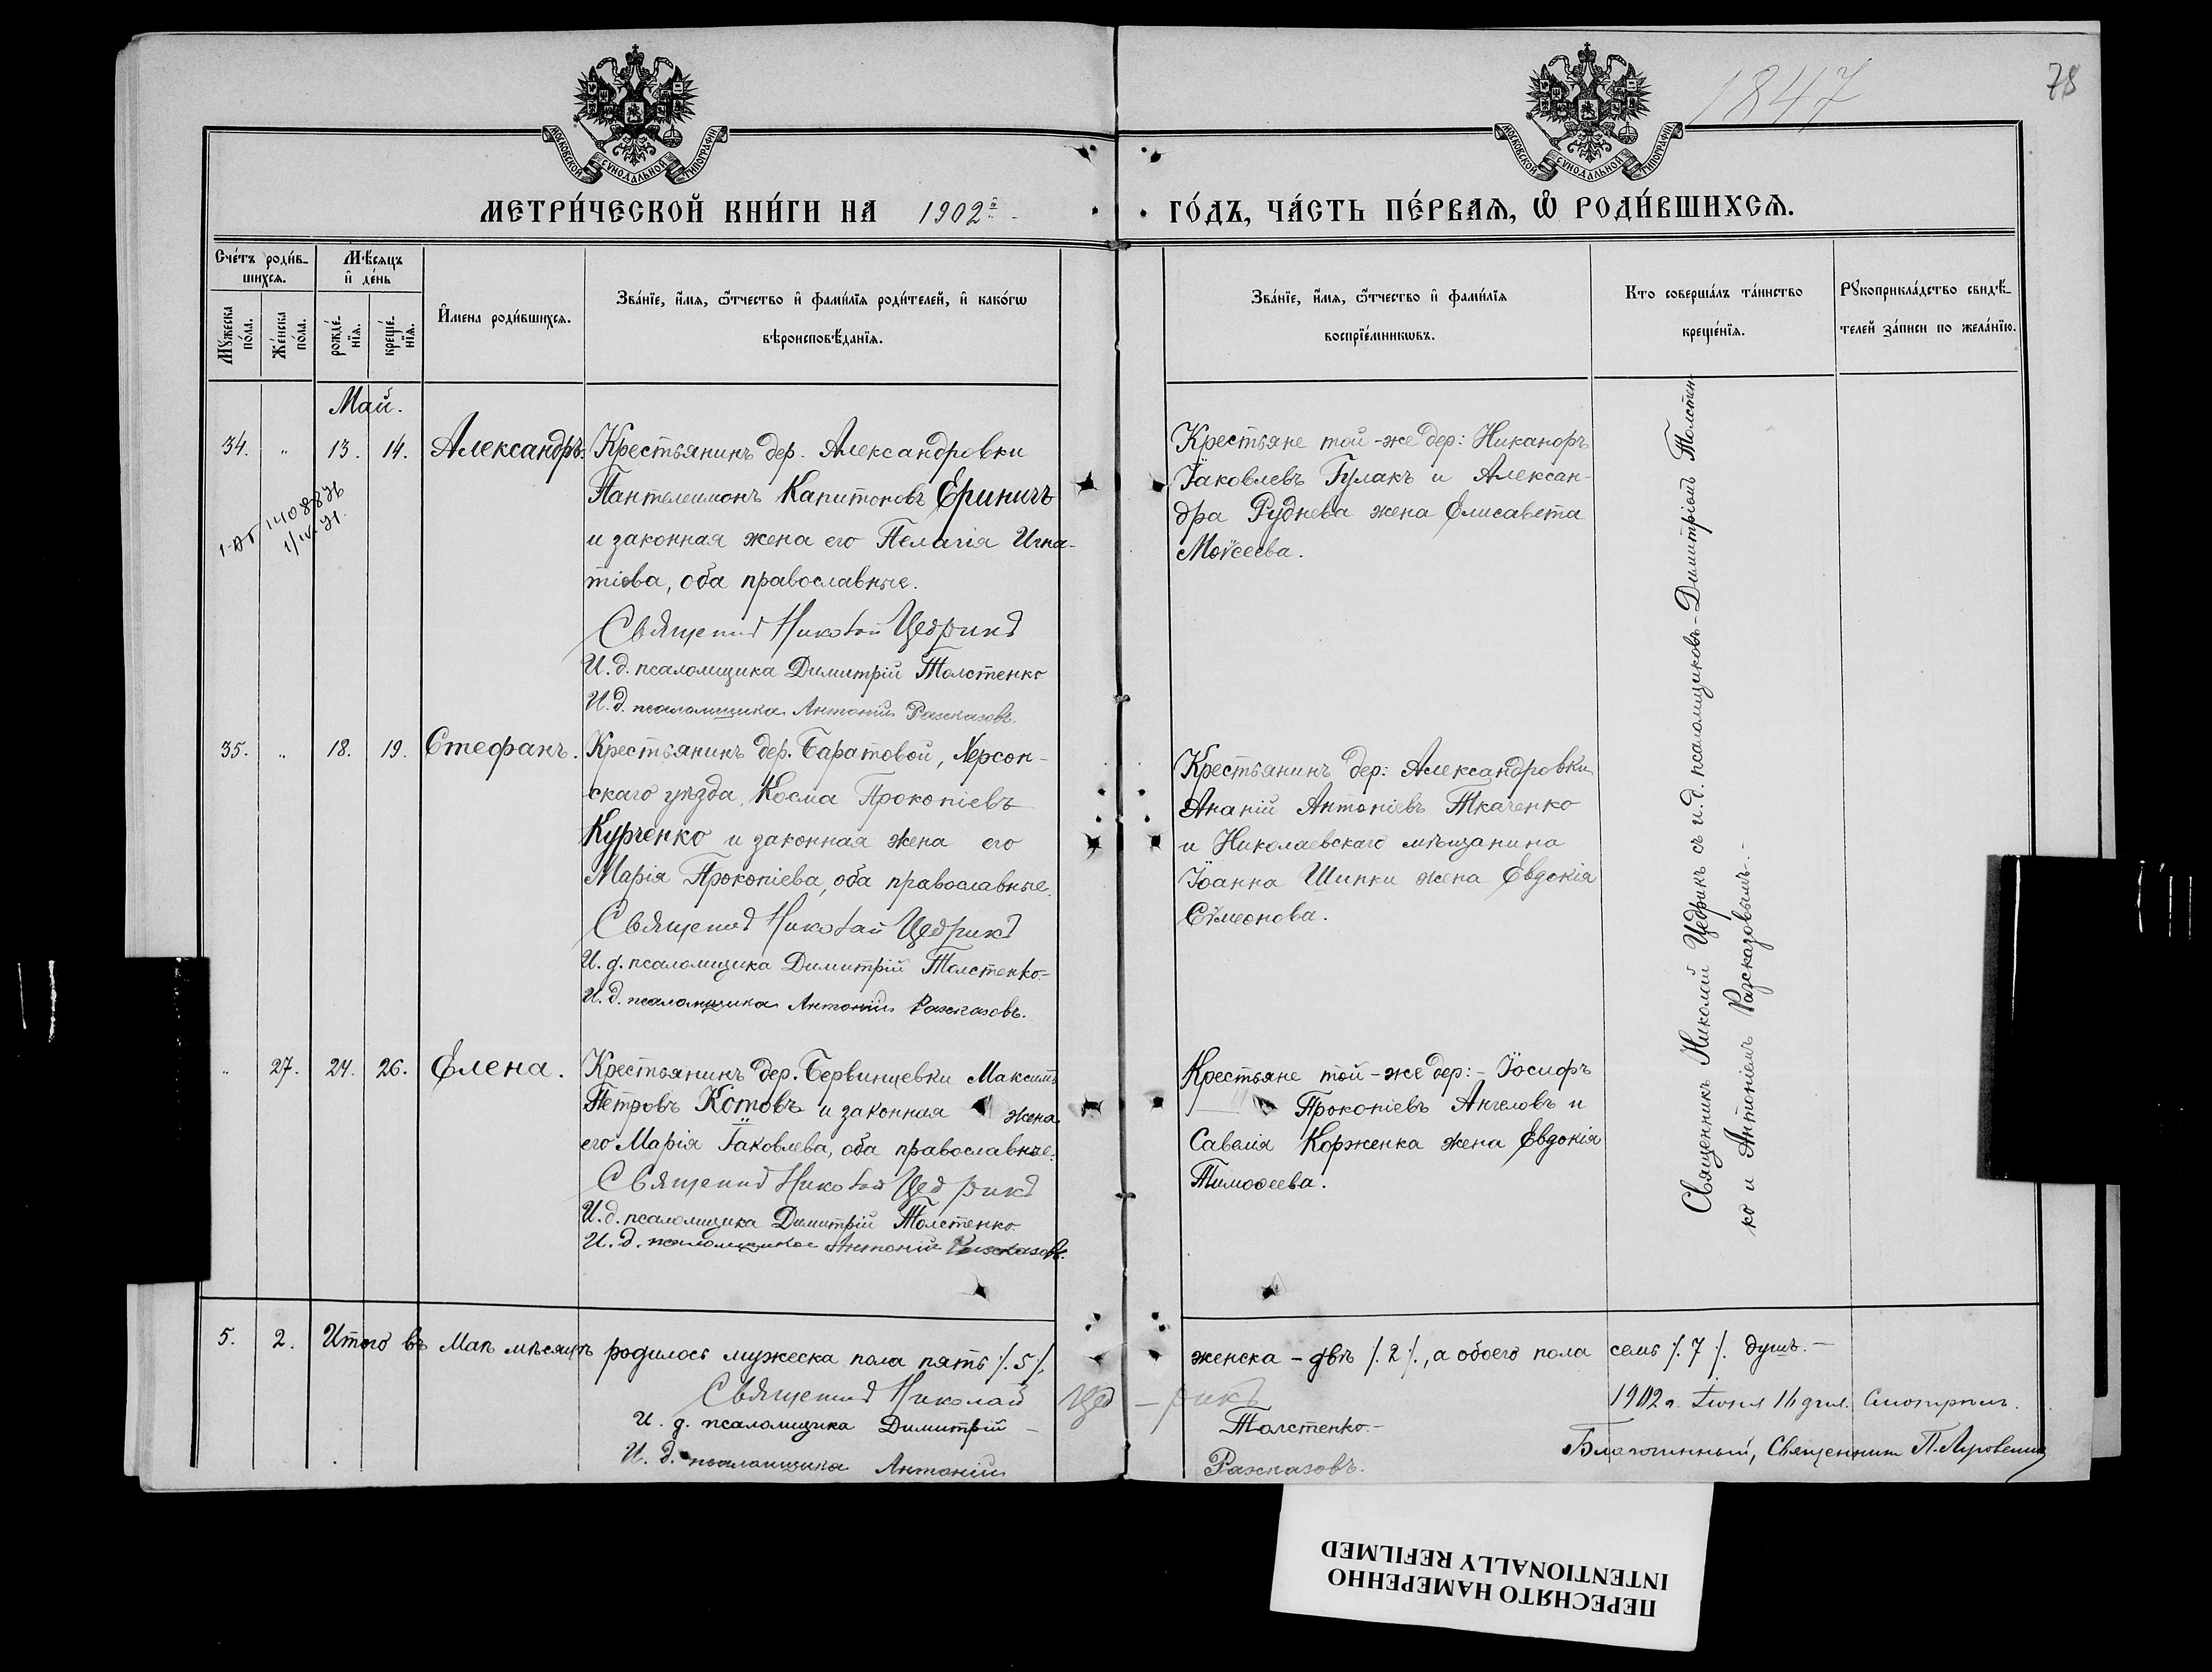 1847
78
МОСКОВСКОЙ СѴНОДАЛЬНОЙ ТИПОГРАФІИ
МОСКОВСКОЙ СѴНОДАЛЬНОЙ ТИПОГРАФІИ
МЕТРИ́ЧЕСКОЙ КНИ́ГИ НА 1902й
ГО́ДЪ, ЧА́СТЬ ПЕ́РВАѦ, Ѡ РОДИ́ВШИХСѦ.
Сче́тъ роди́в-
шихсѧ.
Мꙋжеска по́ла.
Же́нска по́ла.
Мѣ́сяцъ и де́нь
рожде́-
нїѧ.
креще́-
нїѧ.
И́мена роди́вшихсѧ.
Зва́нїе, и́мѧ, ѿчество и фами́лїѧ роди́телей, и како́гѡ
вѣроисповѣ́данїѧ.
Зва́нїе, и́мѧ, ѿчество и фами́лїѧ
воспрїе́мникѡвъ.
Кто соверша́лъ та́инство
креще́нїѧ.
Рꙋкоприкла́дство свидѣ́-
телей за́писи по жела́нїю.
Май.
34. " 13. 14. Александръ.
Крестьянинъ дер. Александровки
Пантелеимонъ Капитоновъ Ериничъ
и законная жена его Пелагія Игна-
тіева, оба православные.
Священникъ Николай Цедрикъ
И. д. псаломщика Димитрій Толстенко
И. д. псаломщика Антоній Разсказовъ.
Крестьяне той-же дер: Никаноръ
Іаковлевъ Гулакъ и Алексан-
дра Руднева жена Елисавета
Моѵсеева.
35. " 18. 19. Стефанъ.
Крестьянинъ дер. Баратовой, Херсон-
скаго уѣзда, Косма Прокопіевъ
Курченко и законная жена его
Марія Прокопіева, оба православные.
Священникъ Николай Цедрикъ
И. д. псаломщика Димитрій Толстенко.-
И. д. псаломщика Антоній Разсказовъ.
Крестьянинъ дер: Александровки
Ананій Антоніевъ Ткаченко
и Николаевскаго мѣщанина
Іоанна Шипки жена Евдокія
Сѵмеонова.
" 27. 24. 26. Елена.
Крестьянинъ дер. Бервинцевки Максимъ
Петровъ Котовъ и законная жена
его Марія Іаковлева, оба православные.
Священникъ Николай Цедрикъ
И. д. псаломщика Димитрій Толстенко
И. д. псаломщика Антоній Разсказовъ.
Крестьяне той-же дер:- Іосифъ
Прокопіевъ Ангеловъ и
Савелія Корженка жена Евдокія
Тимоѳеева.
Священникъ Николай Цедрикъ съ и. д. псаломщиковъ - Димитріемъ Толстен-
ко и Антоніемъ Разсказовымъ.-
5. 2. Итого въ Маѣ мѣсяцѣ родилось мужеска пола пять /.5/.
женска - двѣ /.2/., а обоего пола семь /.7/. душъ.-
Священникъ Николай Цед-рикъ
И. д. псаломщика Димитрій - Толстенко.-
И. д. псаломщика Антоній Разсказовъ.
1902 г. Іюня 16 дня. Смотрѣлъ.
Благочинный, Священникъ
ПЕРЕСНЯТО НАМЕРЕННО
INTENTIONALLY REFILMED